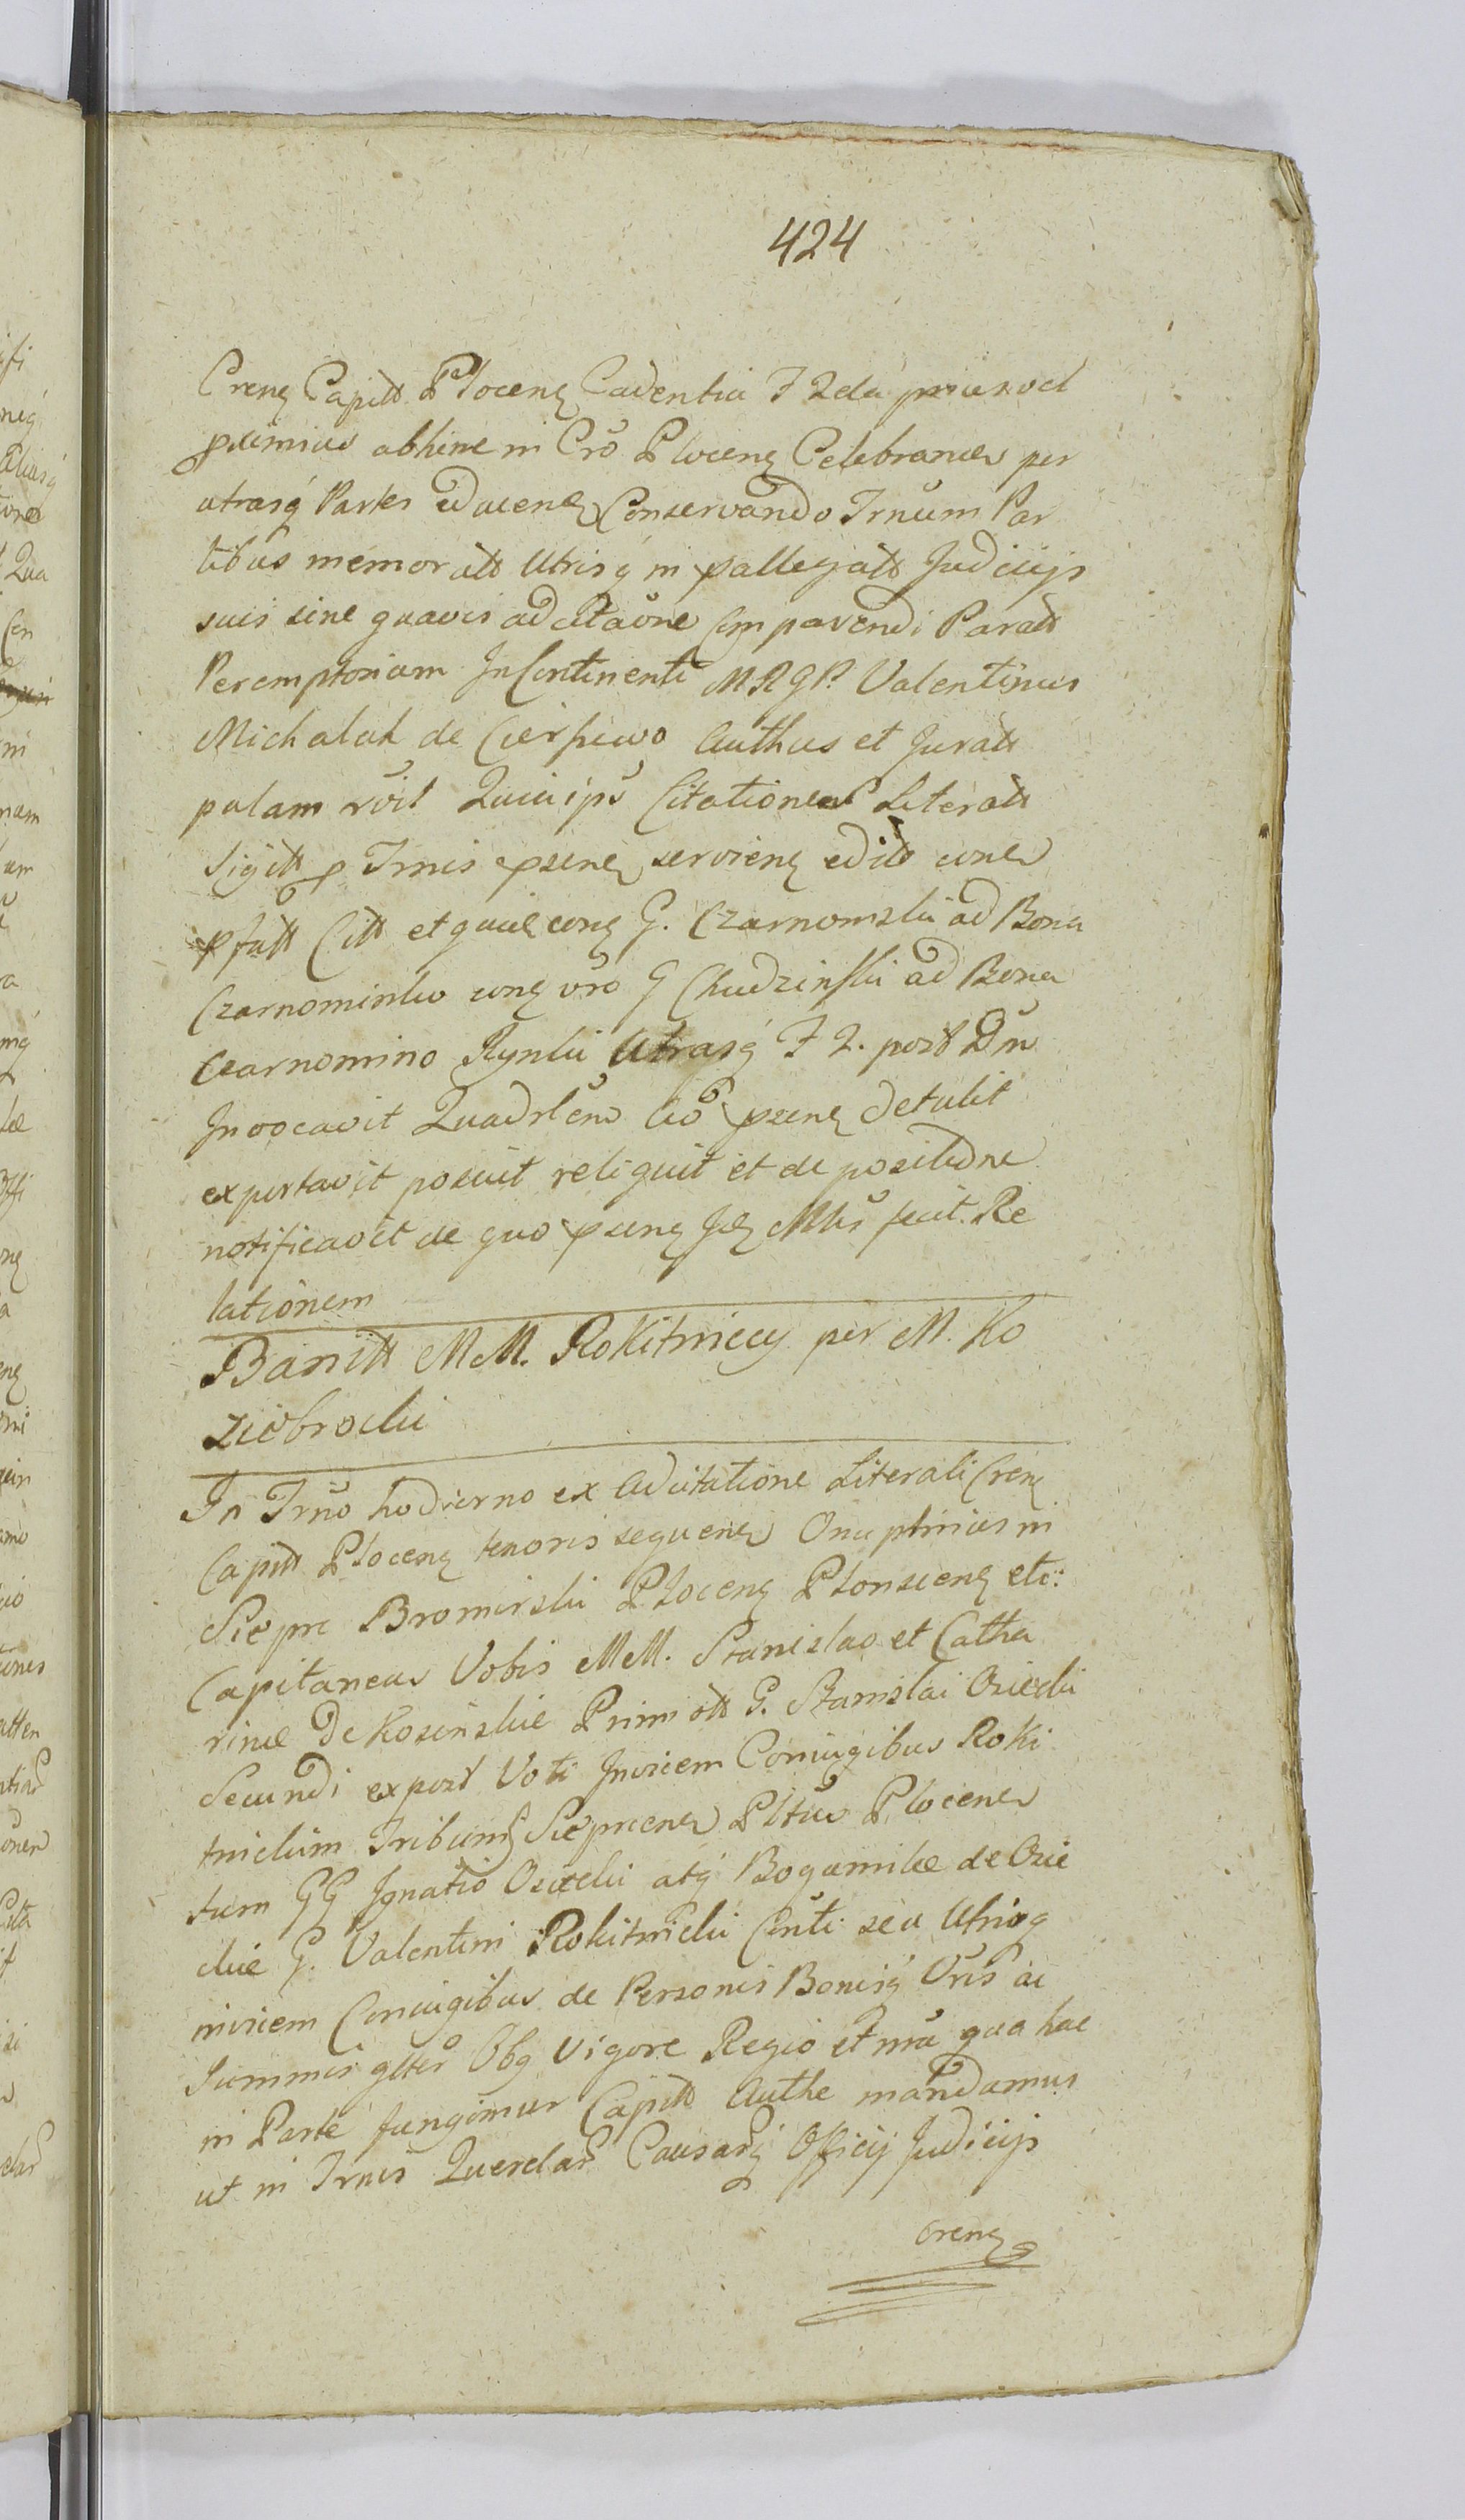 424
Crenẽ Capitt Plocenẽ Cadentia F 2da prius vel
pximius abhinc in Crõ Plocenẽ Celebranẽ per
utrasq̃ Partes educenẽ Conservando Trnum Par
tibus memoratt Utrisq̃ in pallegatt Judicijs
suis sine quavis adcitaõne Comparendi Paratt
Peremptoriam Incontinenti MRGP. Valentinus
Michalak de Cierpiewo Authus et Juratt
palam rõit Quia ips Citationes Literatt
Sigitt p Trnis psenẽ servienẽ editt
pfatt Citt et quidẽ conẽ G. Czarnomski ad Bona
Czarnominko conẽ vro G Chudzinski ad Bona
Czarnomino Rynki Utrasq̃ F 2. post Dñ
Invocavit Quadrlem Aõ psenẽ detulit
exportavit posuit reliquit et de positiõne
notificavit de quo psenẽ Jdẽ Mlis fecit Re
lationem
Banitt MM. Rokitniccy per M. Ko
ziebrocki
In Trño hodierno ex Adcitatione Literali Crenẽ
Capitt Plocenẽ tenoris sequenẽ Onuphrius in
Siepre Bromirski Plocenẽ Plonscenẽ etc:
Capitaneus Vobis MM. Stanislao et Catha
rinæ De Kosinskie Primi ott G. Stanislai Osiecki
Secundi expost Voti Invicem Coniugibus Roki
tnickim Tribunẽ Sieprcenẽ Pltũs Plocenẽ
tum GG Ignatio Osiecki atq̃ Bogumilæ de Osie
ckie G. Valentini Rokitnicki Cnti seu Utriq
invicem Coniugibus de Personis Bonisq̃ Vris ac
Summis glter Obq Vigore Regio et mã qua hac
in Parte fungimur Capitt Authe mandamus
ut in Trnis Querelar̃ Causarq̃ Officij Judicijs
Crenẽ